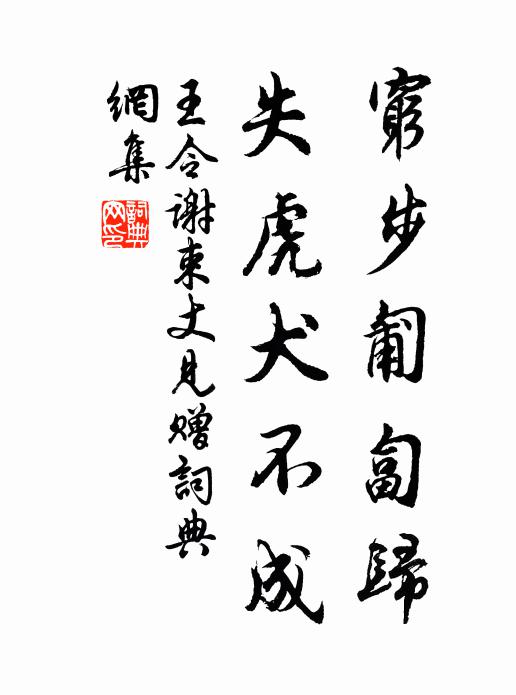 窮步匍匐歸
失虎犬不成
王令謝束丈見贈詞典
網集
詞典網印